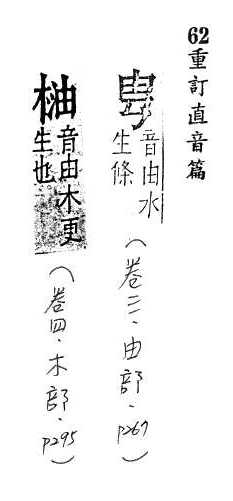 62重訂直音篇
音由水
生條
(卷二‧由部‧p267)
音由木更
生也
(卷四‧木部‧p295)